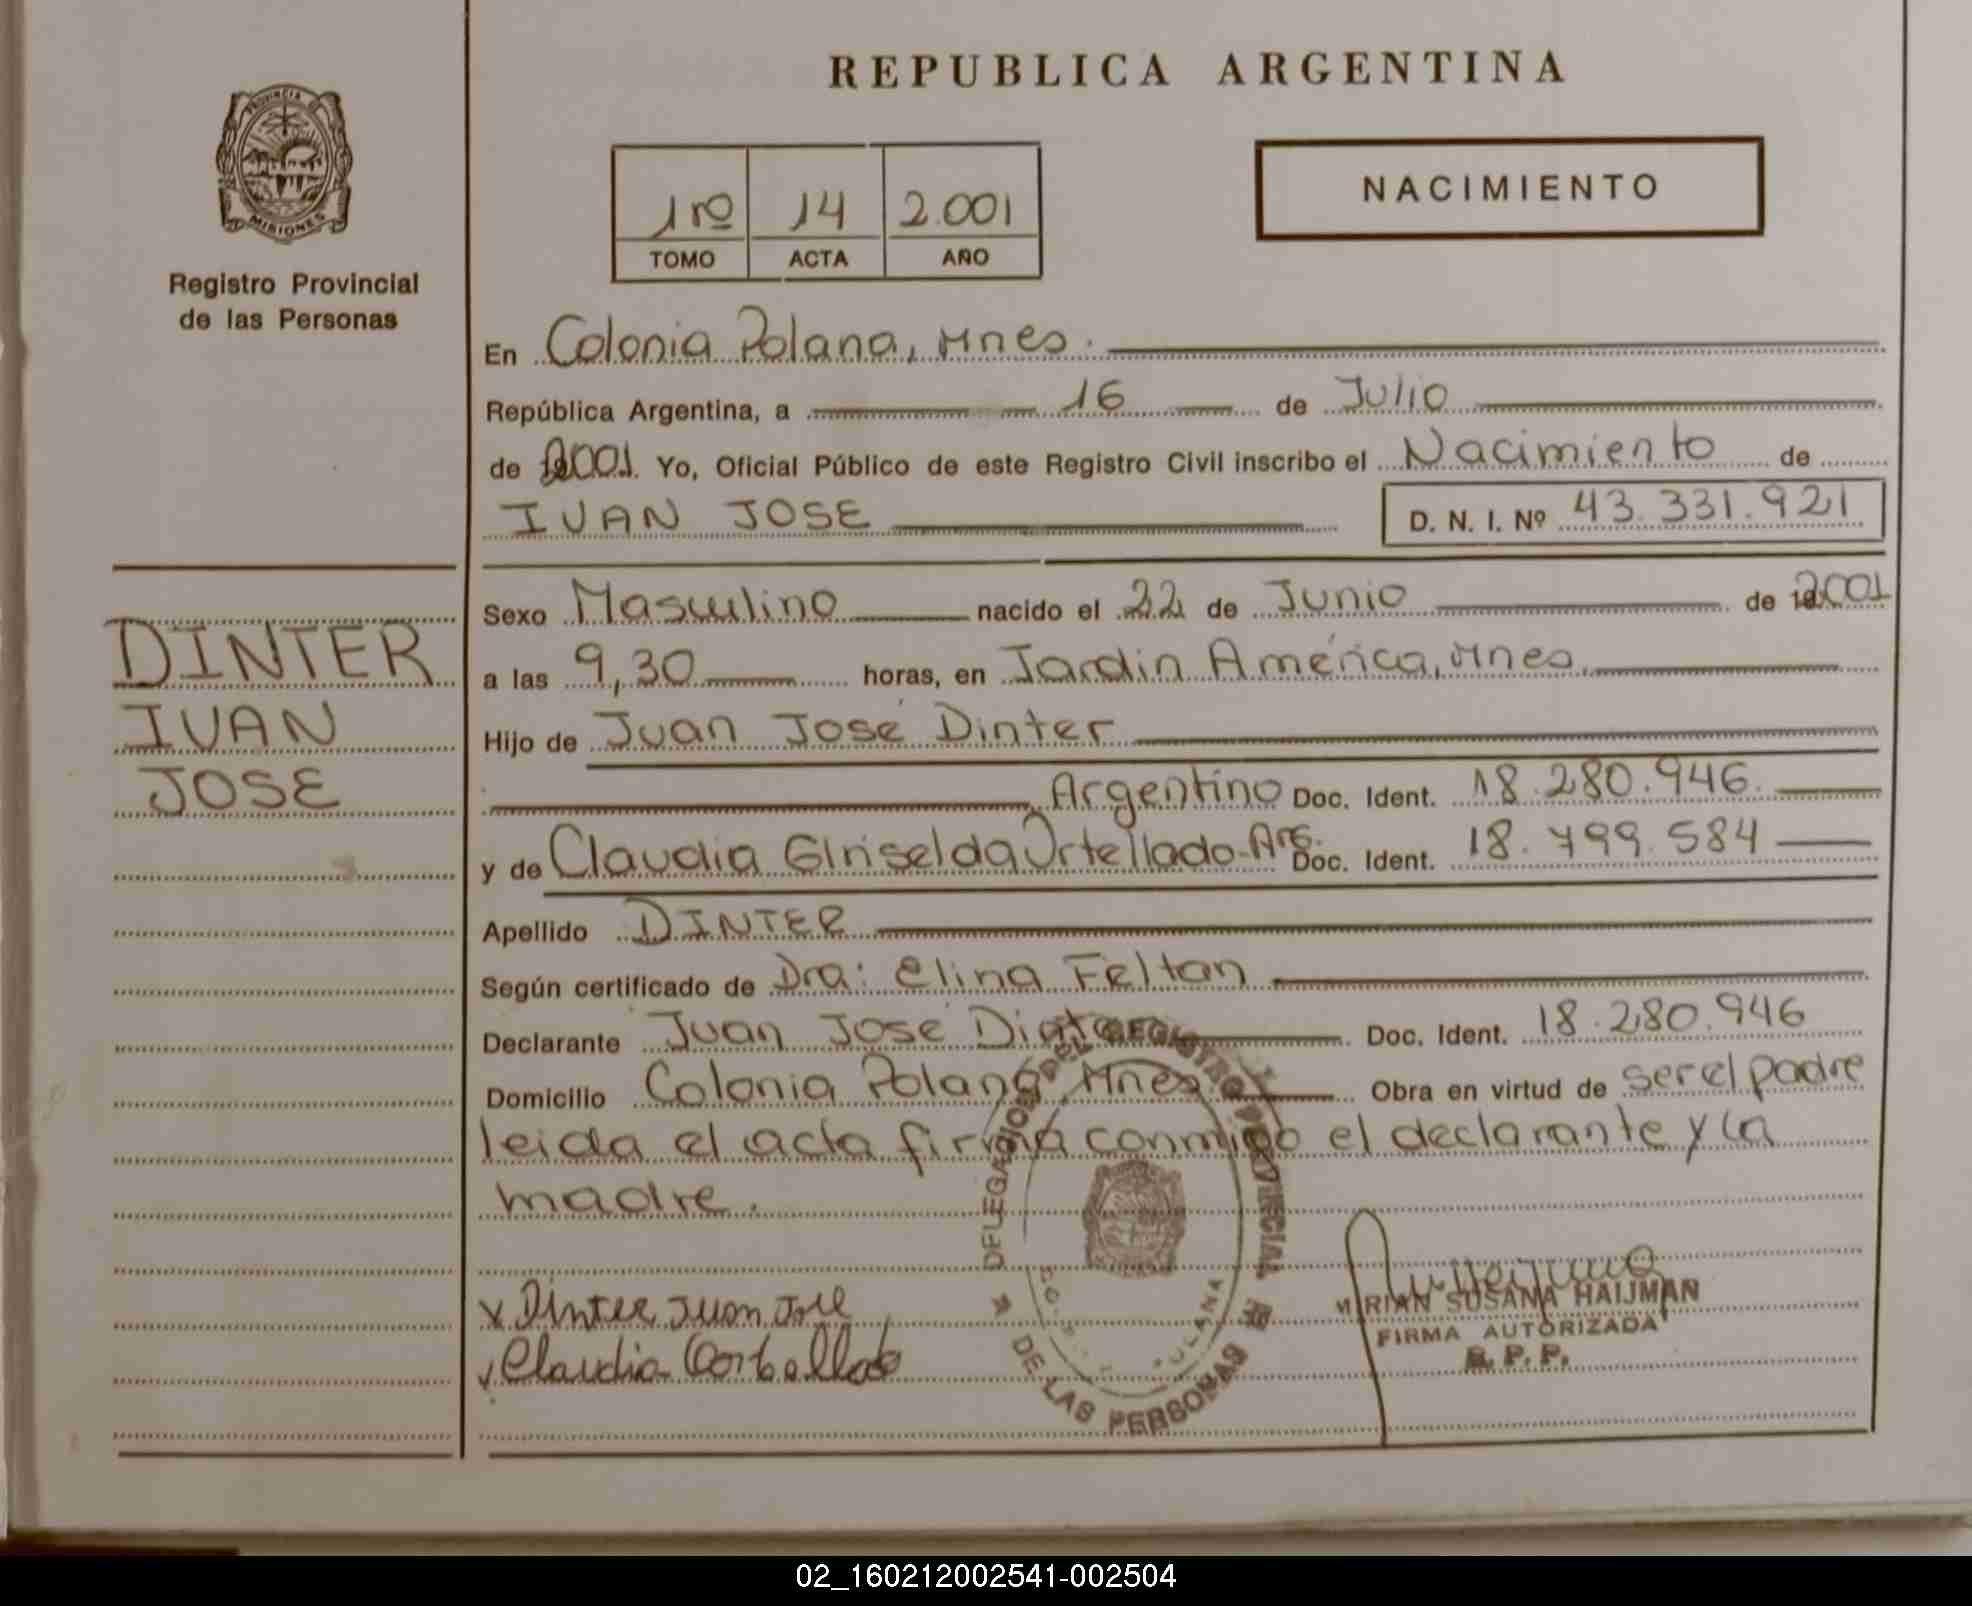 REPUBLICA ARGENTINA
PROVINCIA DE
MISIONES
Registro Provincial
de las Personas
1ro 14 2.001
TOMO ACTA AÑO
NACIMIENTO
En Colonia Polana, Mnes.
República Argentina, a 16 de Julio
de 2001. Yo, Oficial Público de este Registro Civil inscribo el Nacimiento de
IVAN JOSE D. N. I. Nº 43.331.921
DINTER
IVAN
JOSE
Sexo Masculino nacido el 22 de Junio de 2001
a las 9,30 horas, en Jardin América, Mnes.
Hijo de Juan José Dinter
Argentino Doc. Ident. 18.280.946.
y de Claudia Griselda Ortellado - Arg. Doc. Ident. 18.799.584
Apellido DINTER
Según certificado de Dra: Elina Feltan
Declarante Juan José Dinter Doc. Ident. 18.280.946
Domicilio Colonia Polana Mnes Obra en virtud de ser el padre
leida el acta firma conmigo el declarante y la
madre.
DEL REGISTRO PROVINCIAL
DE LAS PERSONAS
x Dinter Juan José
Claudia
MIRIAN SUSANA HAIJMAN
FIRMA AUTORIZADA
R. P. P.
02_160212002541-002504